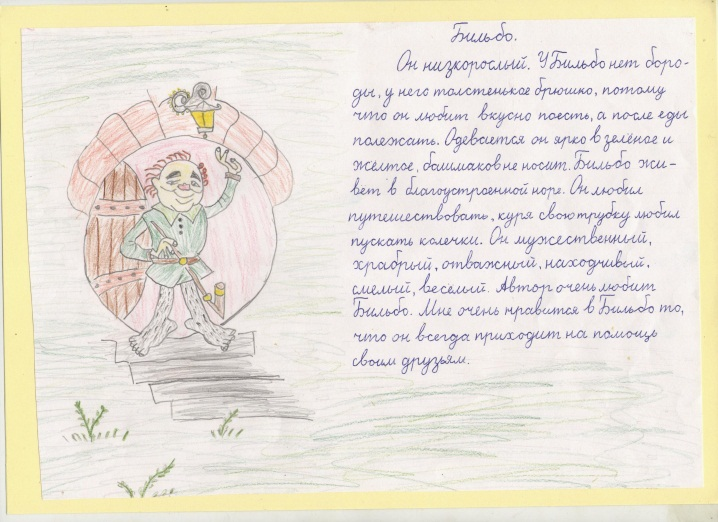 Бильбо.
Он низкорослый. У Бильбо нет боро-
ды, у него толстенькое брюшко, потому
что он любит вкусно поесть, а после еды
полежать. Одевается он ярко в зелёное и
жёлтое, башмаков не носит. Бильбо жи-
вет в благоустроенной норе. Он любил
путешествовать, куря свою трубку любил
пускать колечки. Он мужественный,
храбрый, отважный, находчивый,
смелый, веселый. Автор очень любит
Бильбо. Мне очень нравится в Бильбо то,
что он всегда приходит на помощь
своим друзьям.